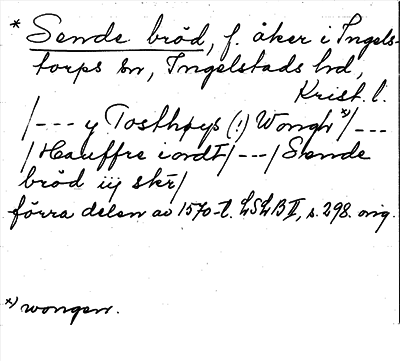 * Sende bröd, f. åker i Ingels-
torps sn, Ingelstads hd,
Krist. l.
/--- y Tosthøys (!) Wongh *)/---
/Hauffre iordt/---/Sende
bröd iij skr/
förra delen av 1570-t. LSLB II, s. 298. orig.
*) wongen.